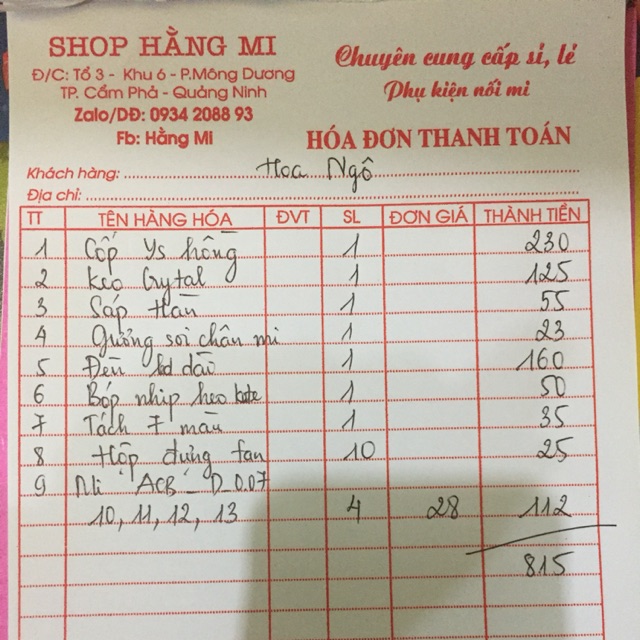 SHOP HẰNG MI
Đ/C: Tổ 3 - Khu 6 - P.Mông Dương
TP. Cẩm Phả - Quảng Ninh
Zalo/DĐ: 0934 2088 93
Fb: Hằng Mi
Chuyên cung cấp sỉ, lẻ
Phụ kiện nối mi
HÓA ĐƠN THANH TOÁN
Khách hàng: Hoa Ngô
Địa chỉ:
TT TÊN HÀNG HÓA ĐVT SL ĐƠN GIÁ THÀNH TIỀN
1 Cốp Ys hồng 1 230
2 Keo Crytal 1 125
3 Sáp Hàn 1 55
4 Gương soi chân mi 1 23
5 Đèn dào 1 160
6 Bóp nhíp heo 1 50
7 Tách 7 màu 1 35
8 Hộp đựng fan 10 25
9 Mi "ACB" D_0.07
10, 11, 12, 13 4 28 112
815